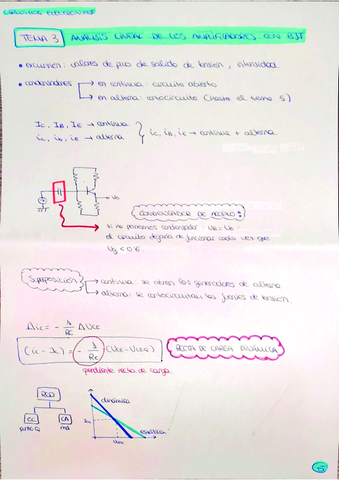 CIRCUITOS ELECTRÓNICOS
TEMA 3 ANÁLISIS LINEAL DE LOS AMPLIFICADORES CON BJT
• excursión: valores de pico de salida de tensión, intensidad
• condensadores → en continua: circuito abierto
→ en alterna: cortocircuito (hasta el tema 5)
IC, IB, IE → continua
ic, ib, ie → alterna
iC, iB, iE → continua + alterna
CONDENSADOR DE ACOPLO:
si no ponemos condensador
el circuito dejaría de funcionar cada vez que
Vg < 0.6
Superposición → continua: se abren los generadores de alterna
→ alterna: se cortocircuitan las fuentes de tensión
Δic = - 1/RC ΔVCE
(ic - Ic) = - 1/RC (VCE - VCEQ)
RECTA DE CARGA DINÁMICA
pendiente recta de carga
RCD
CC CA
punto Q
dinámica
estática